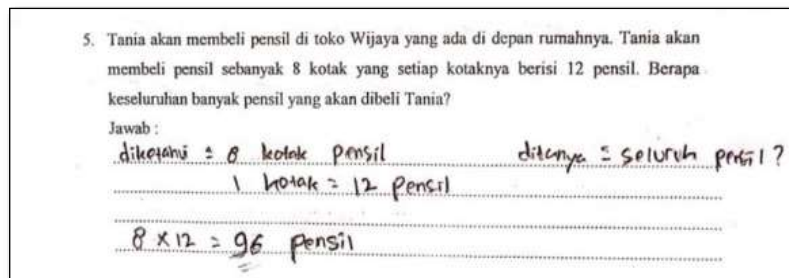 5. Tania akan membeli pensil di toko Wijaya yang ada di depan rumahnya. Tania akan
membeli pensil sebanyak 8 kotak yang setiap kotaknya berisi 12 pensil. Berapa
keseluruhan banyak pensil yang akan dibeli Tania?
Jawab :
diketahui = 8 kotak pensil ditanya = seluruh pensil?
1 kotak = 12 pensil
8 x 12 = 96 pensil